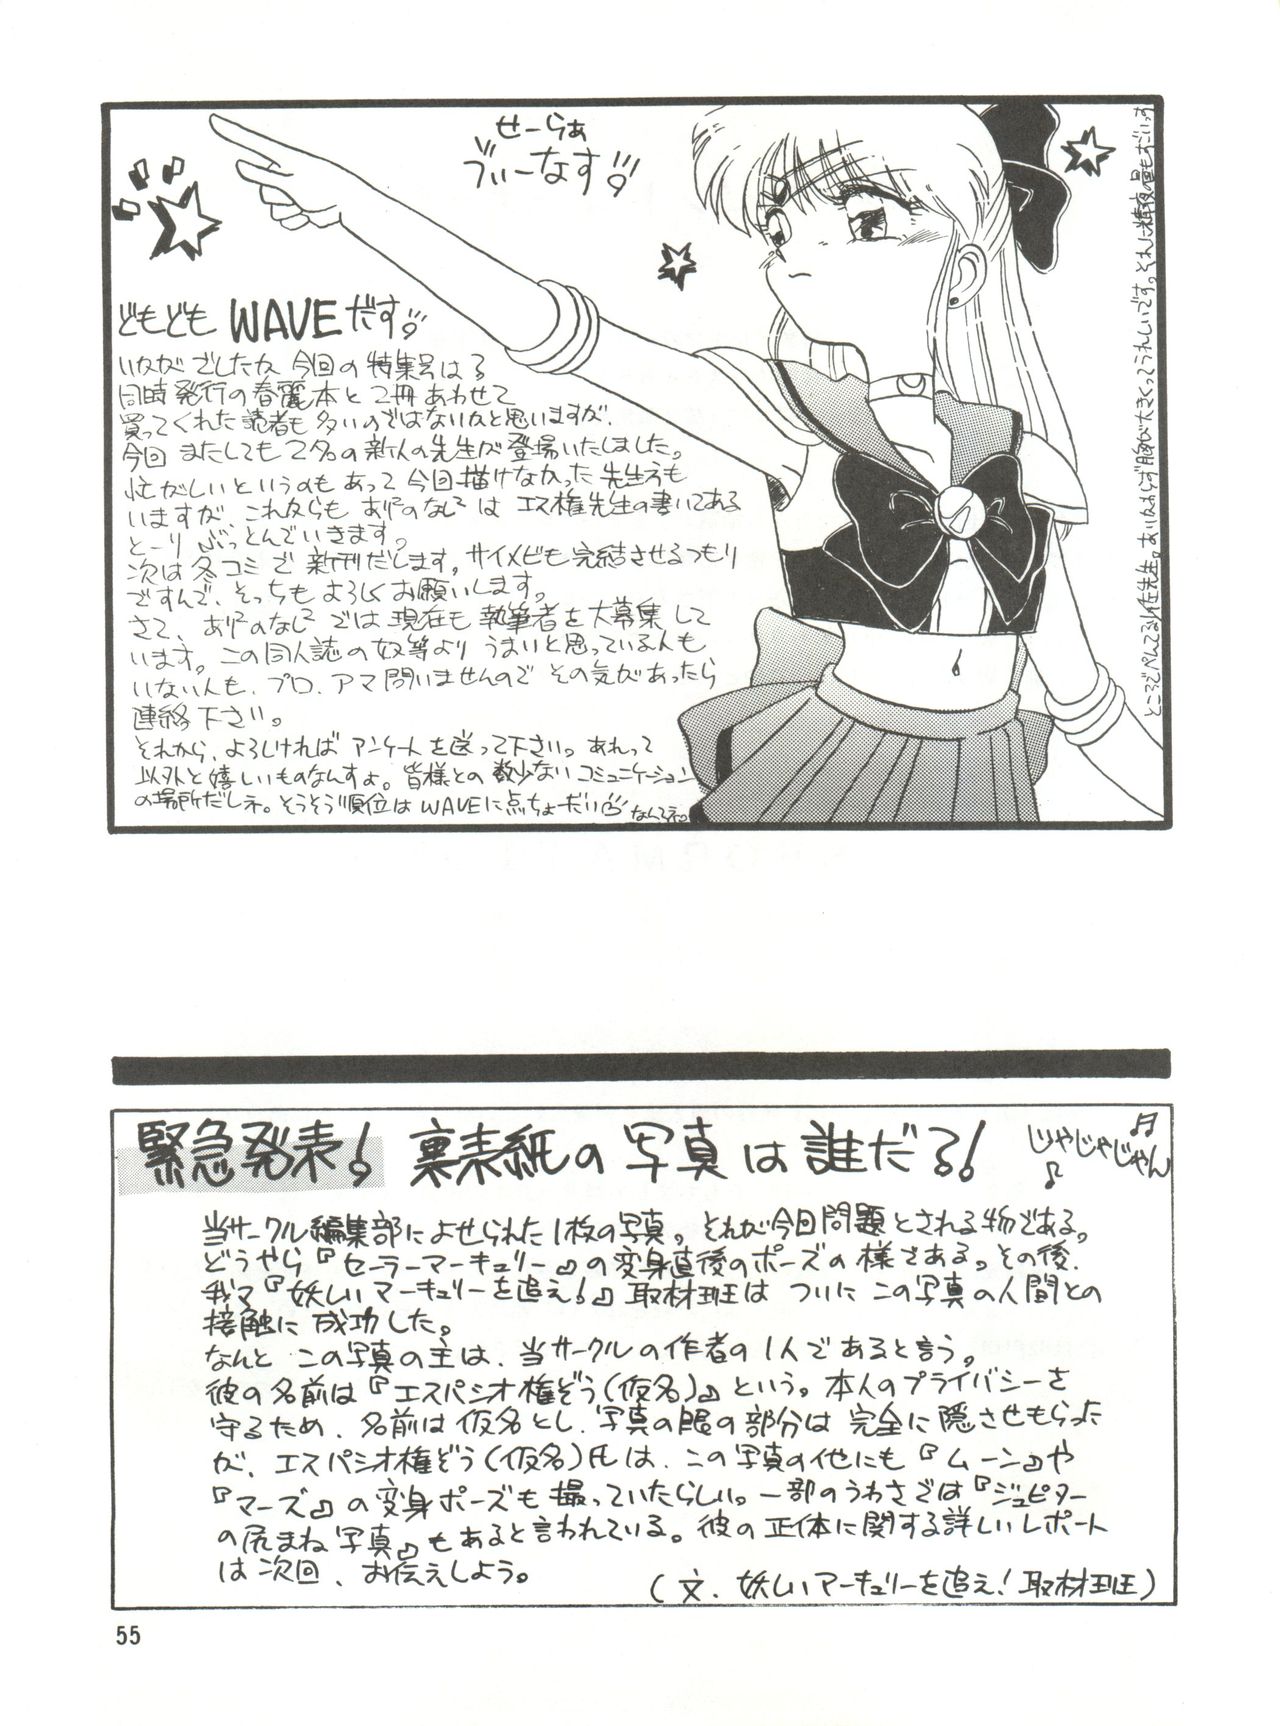 せーらぁ
ぶぃーなす!
どもども WAVEだす!
いかがでしたか 今回の特集号は?
同時発行の春麗本と2冊あわせて
買ってくれた読者も多いのではないかと思いますが、
今回 またしても2名の新人の先生が登場いたしました。
忙がしいというのもあって今回描けなかった先生方も
いますが、これからも ありのなし は エス権先生の書いてある
とーり ぶっとんでいきます。
次は冬コミで新刊だします。サイメビも完結させるつもり
ですんで、そっちもよろしくお願いします。
さて、ありのなし では現在も執筆者を大募集して
います。この同人誌の奴等よりうまいと思っている人も
いない人も、プロ、アマ問いませんので その気があったら
連絡下さい。
それから、よろしければ アンケートを送って下さい。あれって
以外と嬉しいものなんすよ。皆様との数少ないコミュニケーション
の場所だしネ。そうそう順位はWAVEに点ちょーだい なんてネ。
緊急発表! 裏表紙の写真は誰だろ!
じゃじゃじゃん
当サークル編集部によせられた1枚の写真。それが今回問題とされる物である。
どうやら『セーラーマーキュリー』の変身直後のポーズの様である。その後、
我々『妖しいマーキュリーを追え!』取材班は ついに この写真の人間との
接触に成功した。
なんと この写真の主は、当サークルの作者の1人であると言う。
彼の名前は『エスパシオ権ぞう(仮名)』という。本人のプライバシーを
守るため、名前は仮名とし、写真の眼の部分は完全に隠させもらった
が、エスパシオ権ぞう(仮名)氏は、この写真の他にも『ムーン』や
『マーズ』の変身ポーズも撮っていたらしい。一部のうわさでは『ジュピター
の尻まね写真』もあると言われている。彼の正体に関する詳しいレポート
は次回、お伝えしよう。
(文、妖しいマーキュリーを追え! 取材班)
55